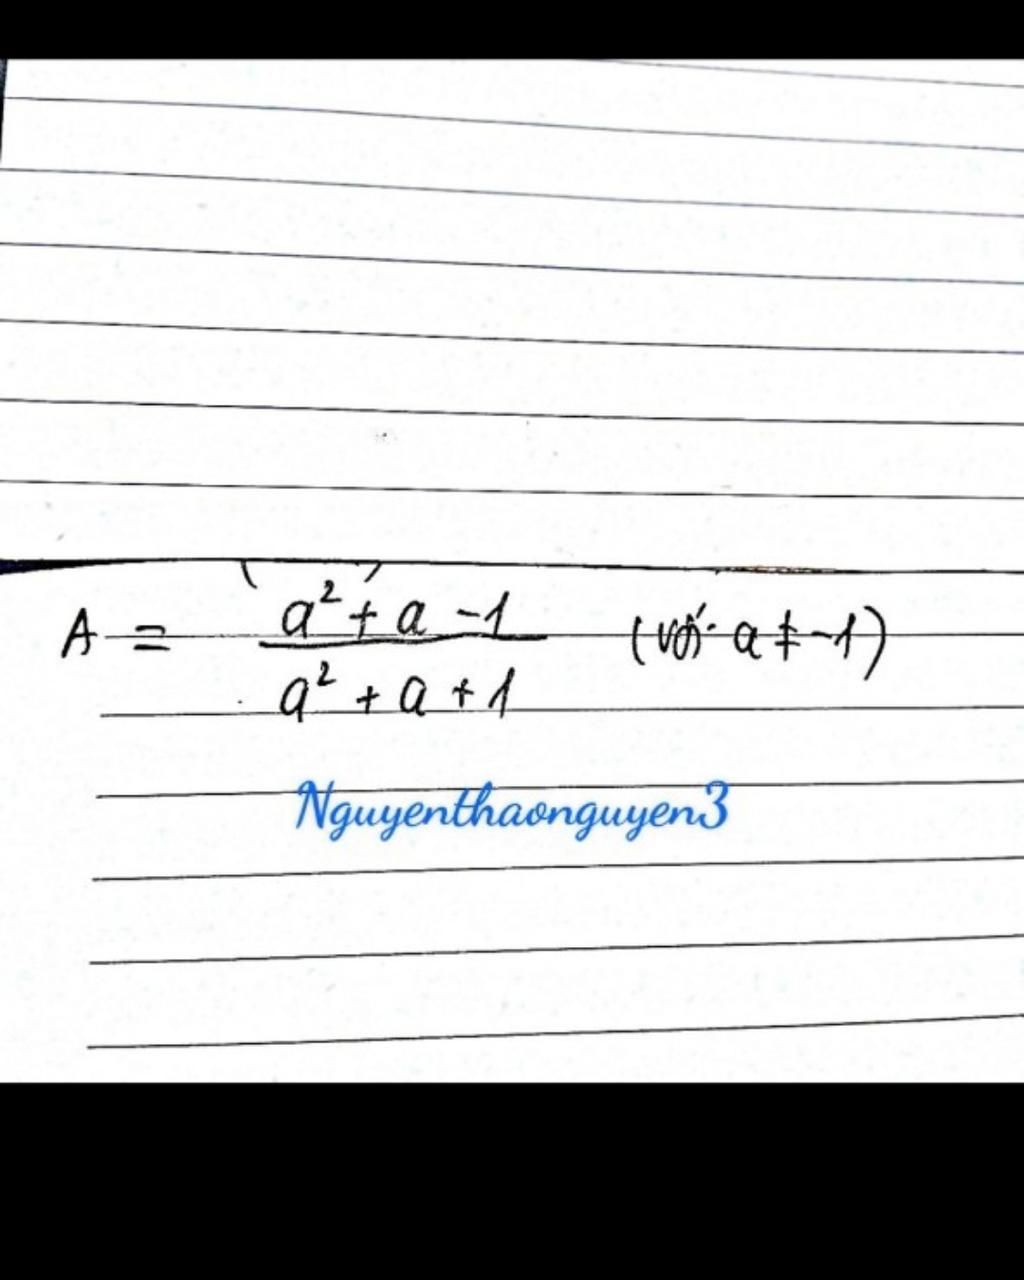 A = a² + a - 1 / a² + a + 1 (với a ≠ -1)
Nguyenthaonguyen3